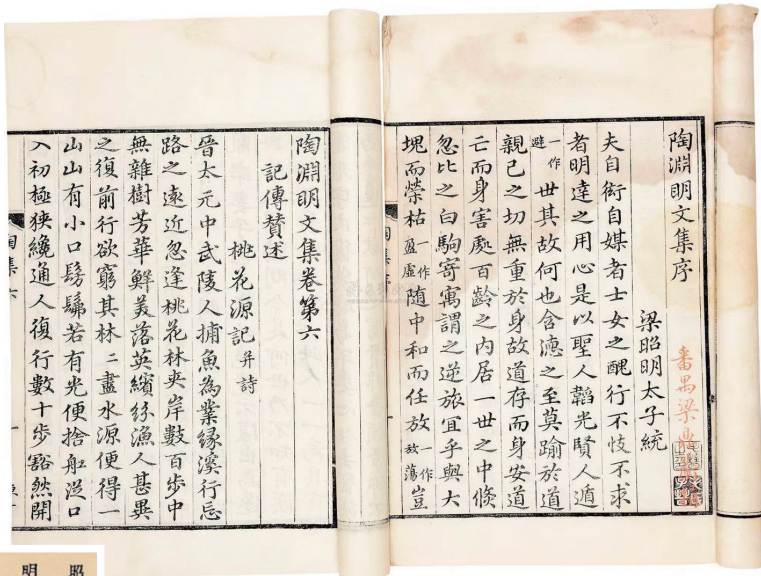 陶淵明文集序
梁昭明太子統
夫自衒自媒者士女之醜行不忮不求
者明達之用心是以聖人韜光賢人遁
一作避世其故何也含德之至莫踰於道
親己之切無重於身故道存而身安道
亡而身害處百齡之內居一世之中倏
忽比之白駒寄寓謂之逆旅宜乎與大
塊而榮枯一作盈虛隨中和而任放一作放蕩豈
番禺梁
陶集序
陶淵明文集卷第六
記傳贊述
桃花源記并詩
晉太元中武陵人捕魚為業緣溪行忘
路之遠近忽逢桃花林夾岸數百步中
無雜樹芳華鮮美落英繽紛漁人甚異
之復前行欲窮其林二盡水源便得一
山山有小口髣髴若有光便捨舡從口
入初極狹纔通人復行數十步豁然開
陶集六
一
昭
明